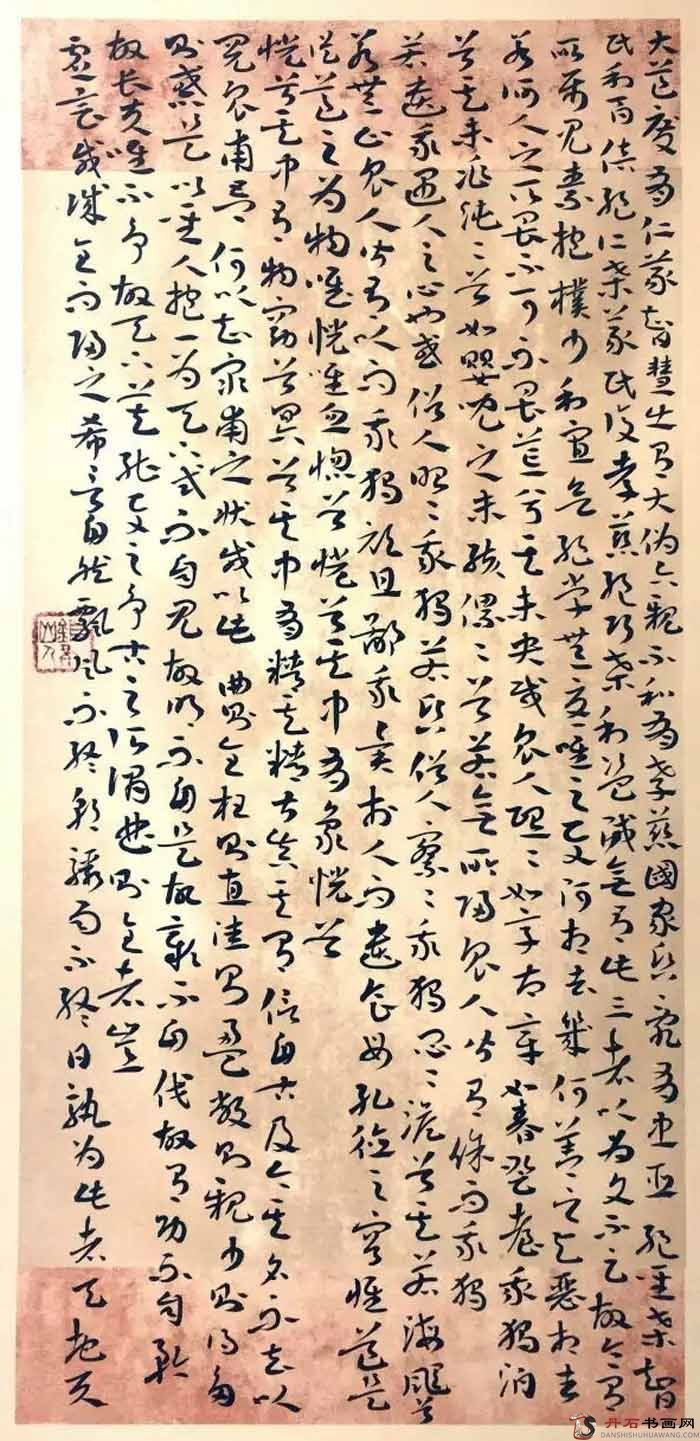 大道廢有仁義智慧出有大偽六親不和有孝慈國家昏亂有忠臣絕聖棄智
民利百倍絕仁棄義民復孝慈絕巧棄利盜賊無有此三者以為文不足故令有
所屬見素抱樸少私寡欲絕學無憂唯之與阿相去幾何善之與惡相去
若何人之所畏不可不畏荒兮其未央哉眾人熙熙如享太牢如春登臺我獨泊
兮其未兆沌沌兮如嬰兒之未孩儽儽兮若無所歸眾人皆有餘而我獨
若遺我愚人之心也哉俗人昭昭我獨若昏俗人察察我獨悶悶澹兮其若海飂兮
若無止眾人皆有以而我獨頑且鄙我異於人而貴食母孔德之容惟道是
從道之為物唯恍唯忽惚兮恍兮其中有象恍兮
恍兮其中有物窈兮冥兮其中有精其精甚真其有信自古及今其名不去以
閱眾甫吾何以知眾甫之狀哉以此曲則全枉則直窪則盈敝則新少則得多
則惑是以聖人抱一為天下式不自見故明不自是故彰不自伐故有功不自矜
故長夫唯不爭故天下莫能與之爭古之所謂曲則全者豈
虛言哉誠全而歸之希言自然飄風不終朝驟雨不終日孰為此者天地天
丹石书画网
DANSHISHUHUAWANG.COM